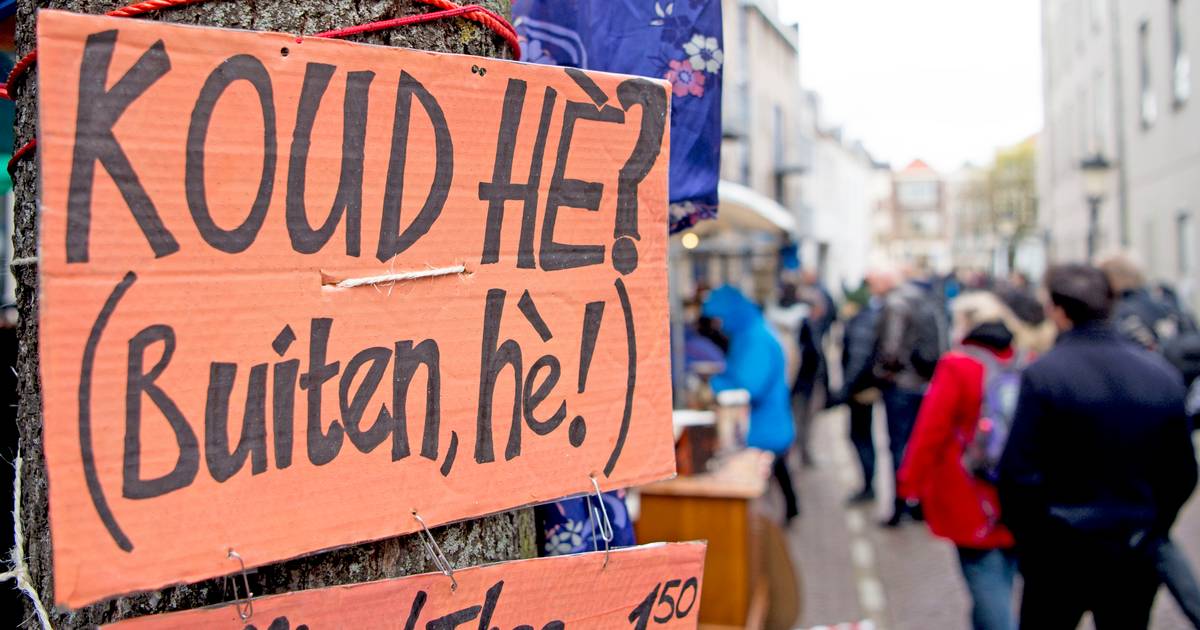 KOUD HÈ?
(Buiten, hè!)
150